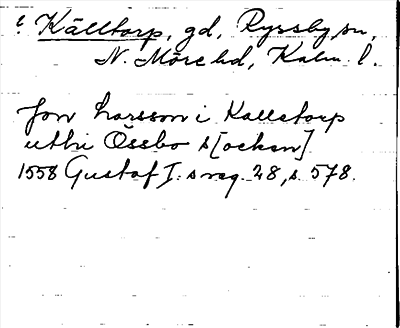 t Källtorp, gd, Ryssby sn,
N. Möre hd, Kalm. l.
Jon Larsson i Kalletorp
uthi Össbo s[ocken]
1558 Gustaf I:s reg. 28, s. 578.